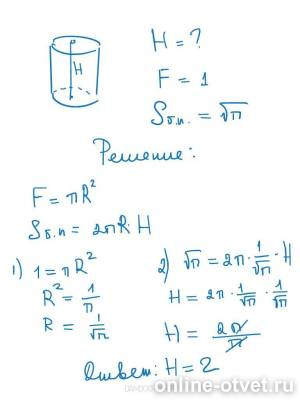 H
H = ?
F = 1
Sб.п. = √π
Решение:
F = πR²
Sб.п = 2πR·H
1) 1 = πR²
R² = 1/π
R = 1/√π
2) √π = 2π · 1/√π · H
H = 2π · 1/√π · 1/√π
H = 2π/π
Ответ: H = 2
online-otvet.ru